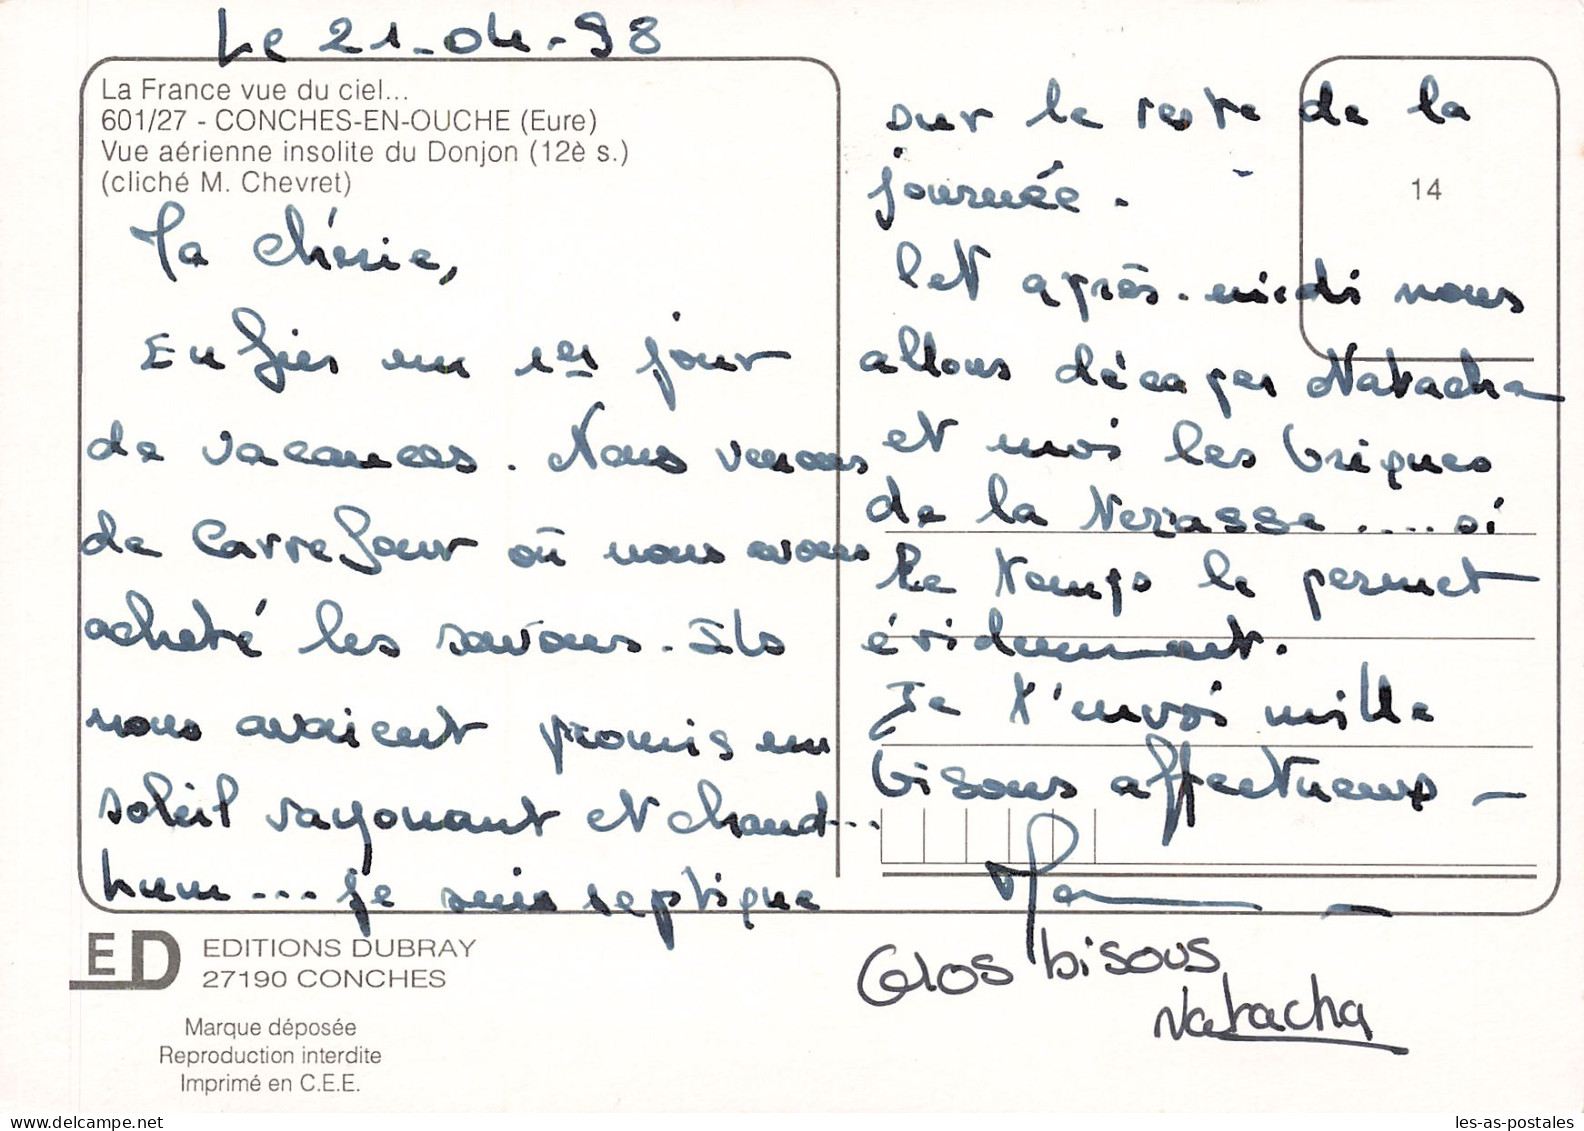 Le 21-04-98
La France vue du ciel...
601/27 - CONCHES-EN-OUCHE (Eure)
Vue aérienne insolite du Donjon (12è s.)
(cliché M. Chevret)
Ma Chérie,
Enfin un 1er jour
de vacances. Nous venons
de Carrefour où nous avons
acheté les savons. Ils
nous avaient promis un
soleil rayonnant et chaud...
hum... je suis septique
sur le reste de la
journée.
Cet après-midi nous
allons décaper Natacha
et moi les briques
de la terrasse.... si
le temps le permet
évidemment.
Je t'envoi mille
bisous affectueux -
Gros bisous
Natacha
14
ED
EDITIONS DUBRAY
27190 CONCHES
Marque déposée
Reproduction interdite
Imprimé en C.E.E.
les-as-postales